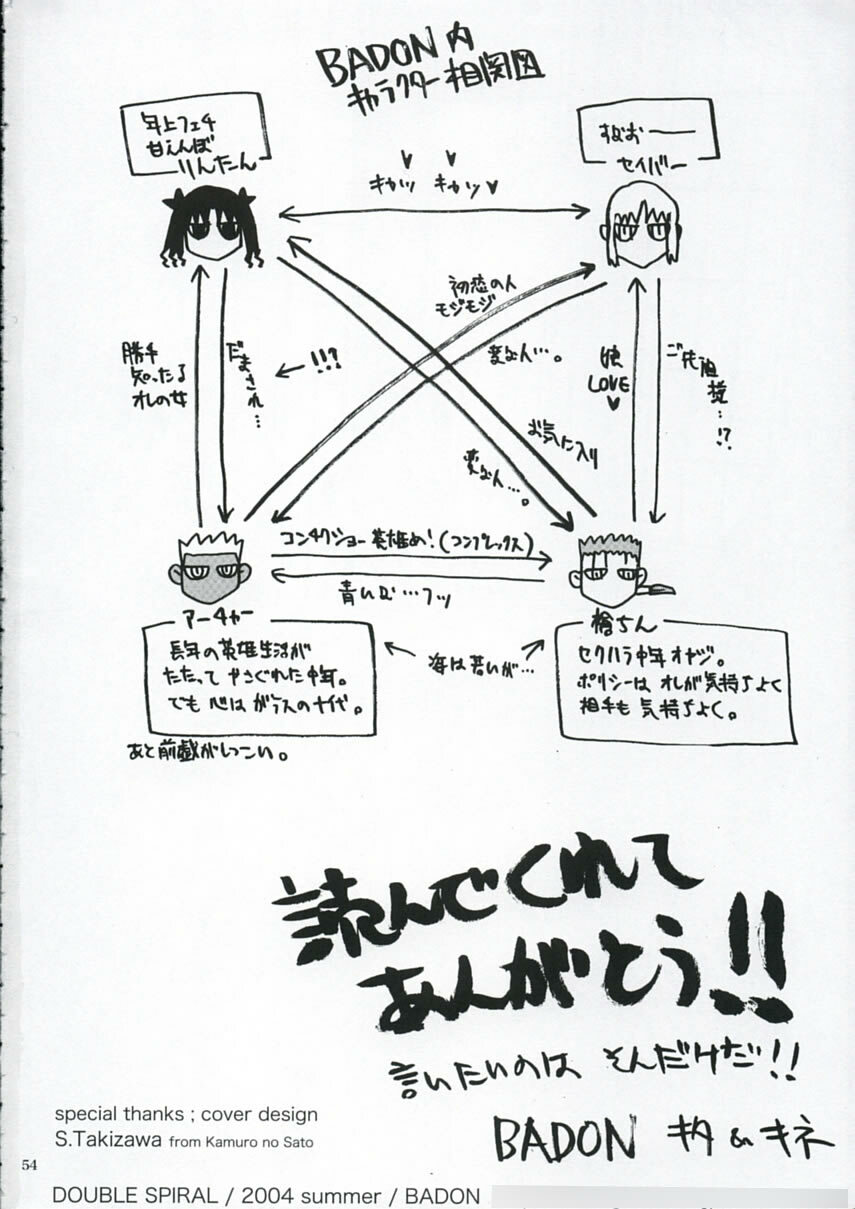 BADON内
キャラクター相関図
年上フェチ
甘えんぼ
りんたん
すなおー
セイバー
キャッ キャッ
初恋の人
モジモジ
勝手
知ったる
オレの女
だまされ…
!!?
変な人…。
娘
LOVE
ご先祖様…!?
お気に入り
変な人…。
コンチクショー英雄め!(コンプレックス)
青いな…フッ
アーチャー
長年の英雄生活が
たたって やさぐれた中年。
でも 心は ガラスの十代。
あと前戯がしつこい。
歳は若いが…
槍ちん
セクハラ中年オヤジ。
ポリシーは オレが気持ちよく
相手も 気持ちよく。
読んでくれて
あんがとう!!
言いたいのは そんだけだ!!
BADON キタ&キネ
special thanks ; cover design
S.Takizawa from Kamuro no Sato
54
DOUBLE SPIRAL / 2004 summer / BADON